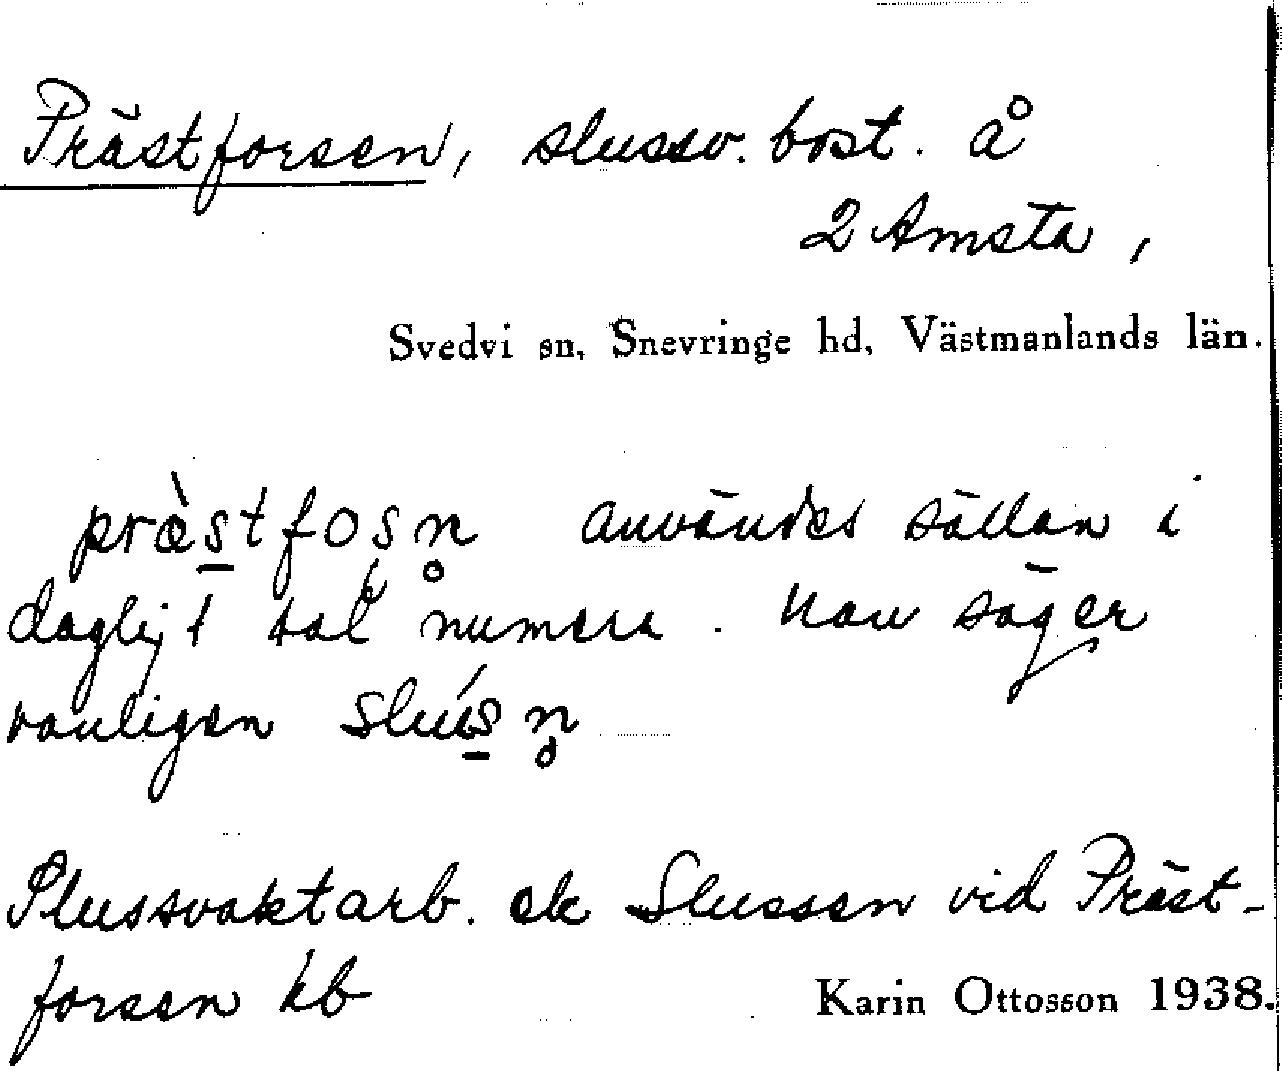 Prästforsen, slussv. bost. å
2 Amsta,
Svedvi sn, Snevringe hd, Västmanlands län.
præ̀s̲tfoṣn̥ användes sällan i
dagligt tal numera. Man säger
vanligen slús̲n̥
Slussvaktarb. ek Slussen vid Präst-
forsen kb
Karin Ottosson 1938.